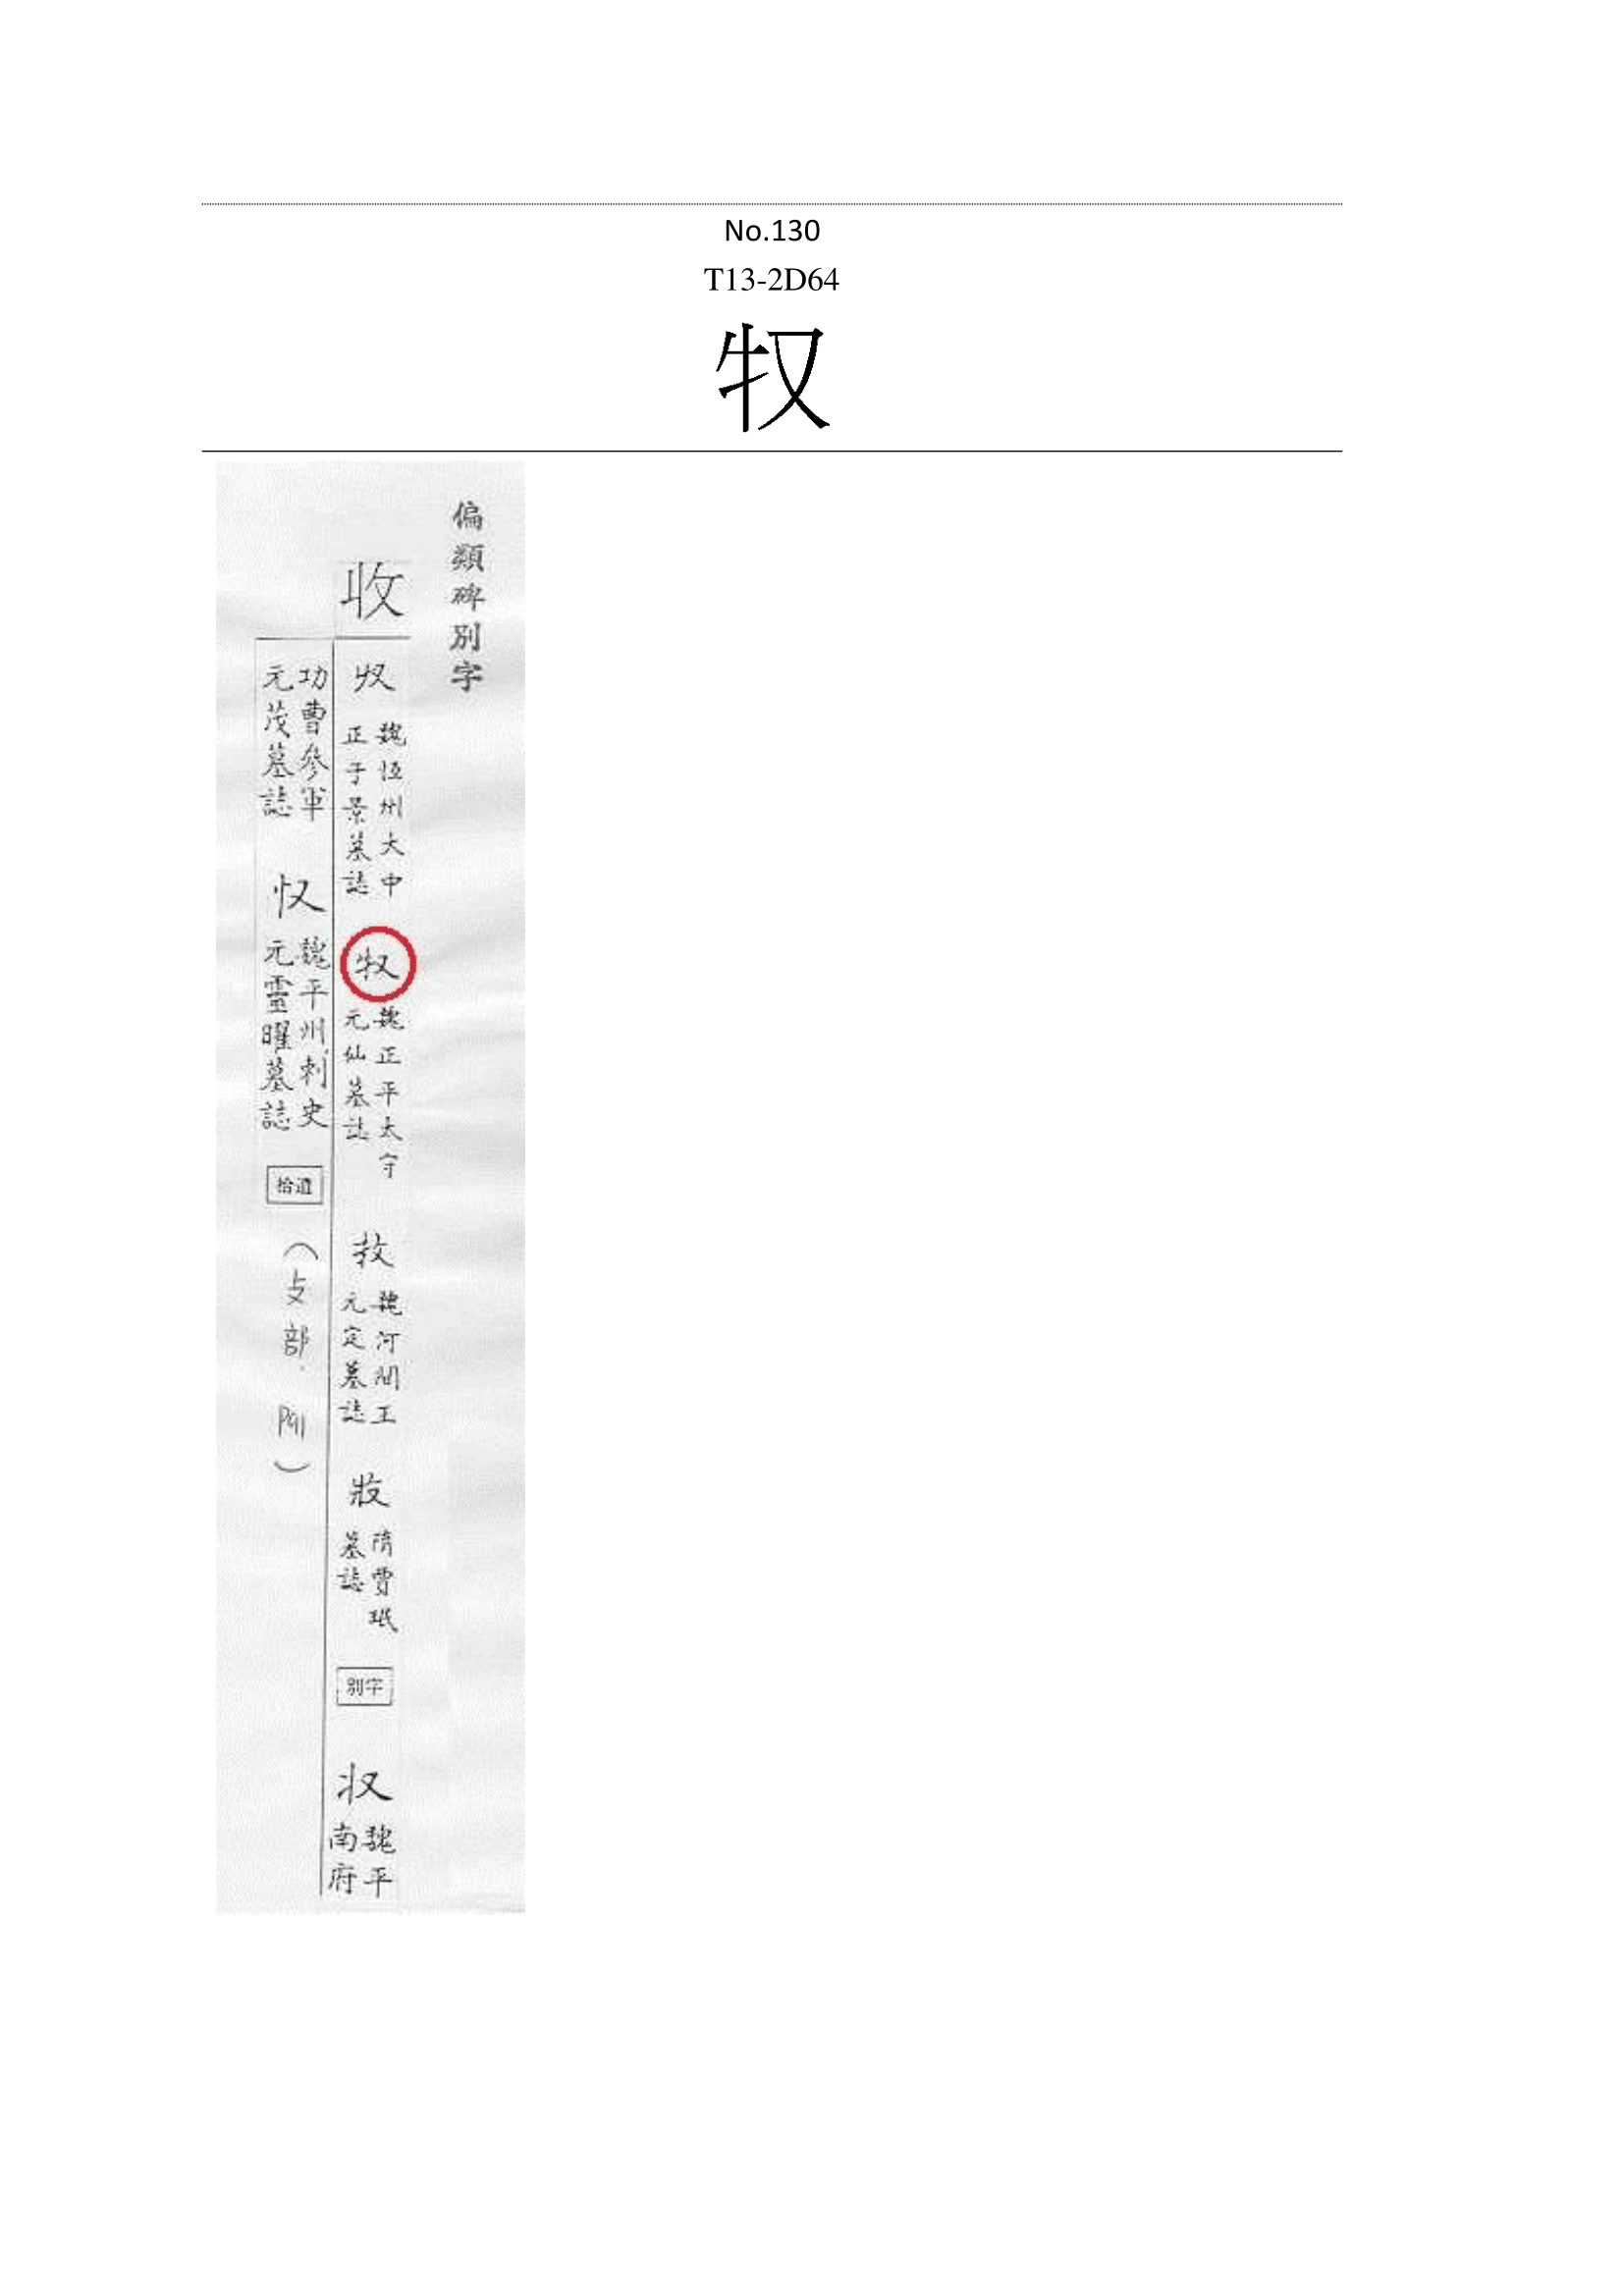 No.130
T13-2D64
⿰牜又
偏類碑別字
收
𠬧
魏恒州大中
正于景墓誌
⿰牜又
魏正平太守
元仙墓誌
魏河間王
元定墓誌
隋賈珉
墓誌
別字
魏平
南府
功曹參軍
元茂墓誌
忟
魏平州刺史
元靈曜墓誌
拾遺
(攴部.